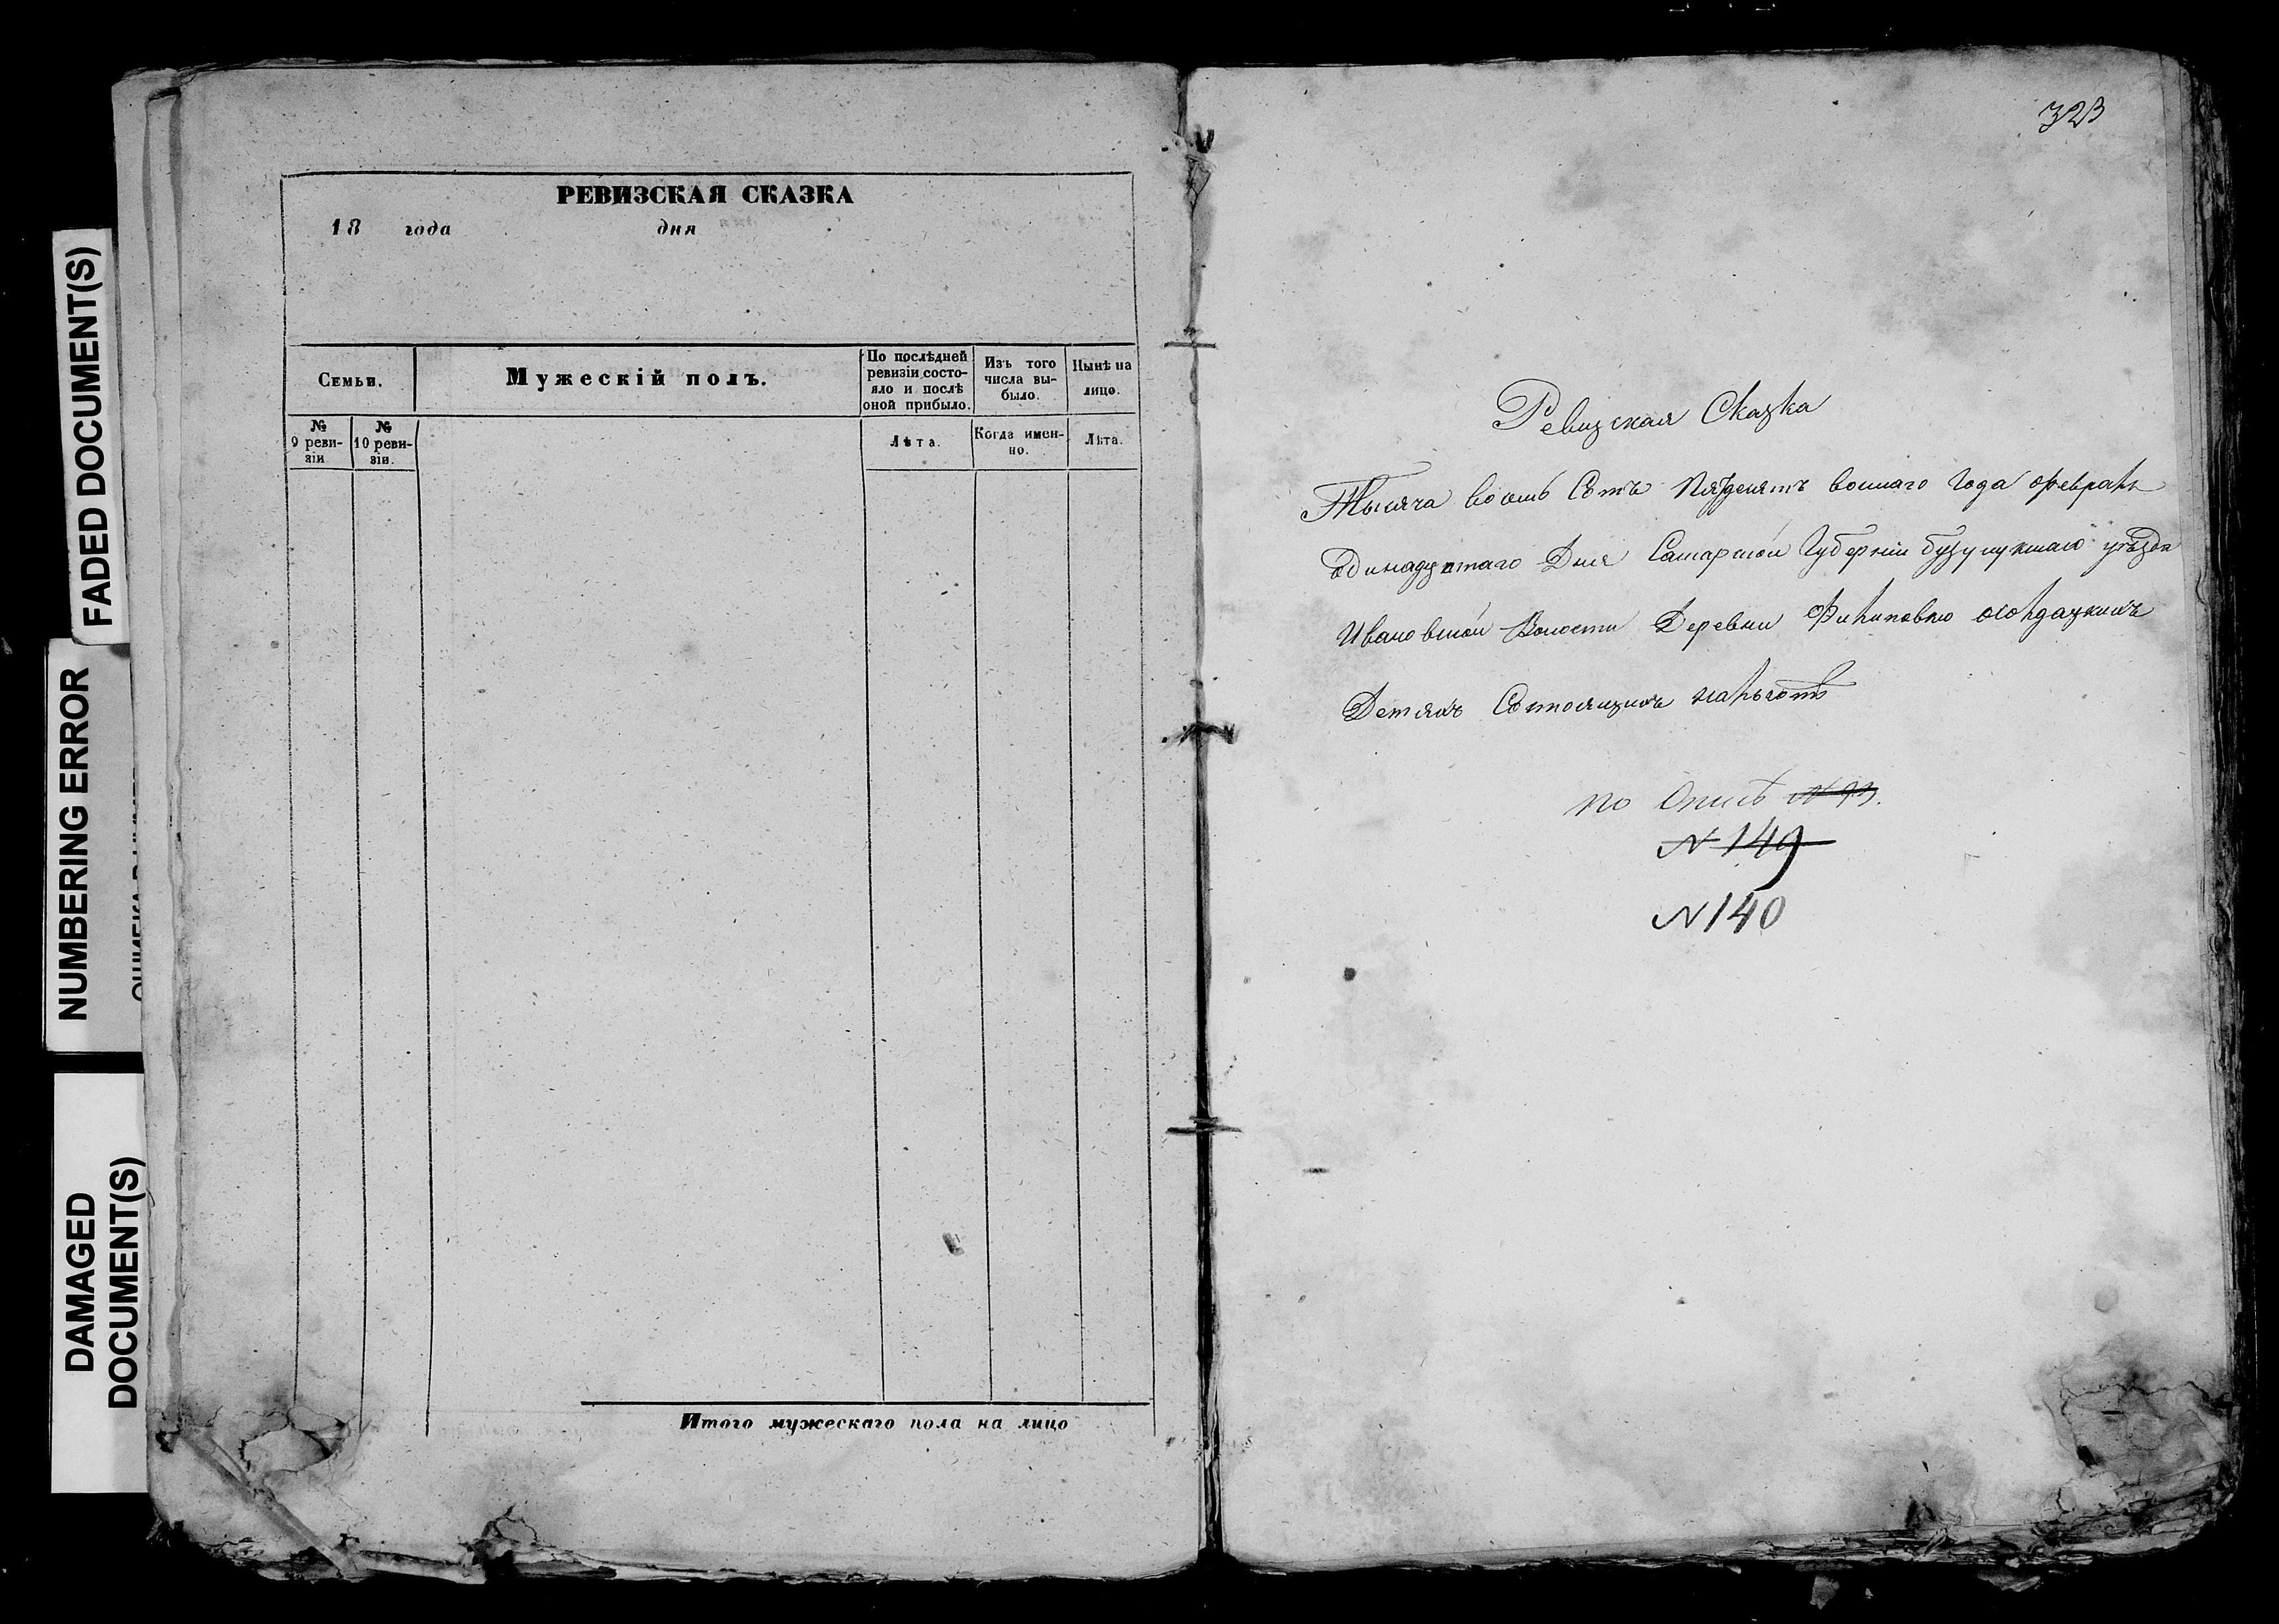 FADED DOCUMENT(S)
NUMBERING ERROR
DAMAGED
DOCUMENT(S)
РЕВИЗСКАЯ СКАЗКА
18 года дня
Семьи.
Мужескій полъ.
По послѣдней
ревизіи состо-
яло и послѣ
оной прибыло.
Изъ того
числа вы-
было.
Нынѣ на
лицо.
№
9 реви-
зіи
№
10 реви-
зіи.
Лѣта.
Когда имен-
но.
Лѣта.
Итого мужескаго пола на лицо
323
Ревизская Сказка
Тысяча восемь Сотъ Пядесятъ восмаго Года февраля
Одинадцатаго Дня Самарской Губерніи бузулукскаго уѣзда
Ивановской Волости Деревни Филиповки солдацкихъ
Детяхъ Состоящихъ нальготѣ
по Описѣ
N 149
N 140